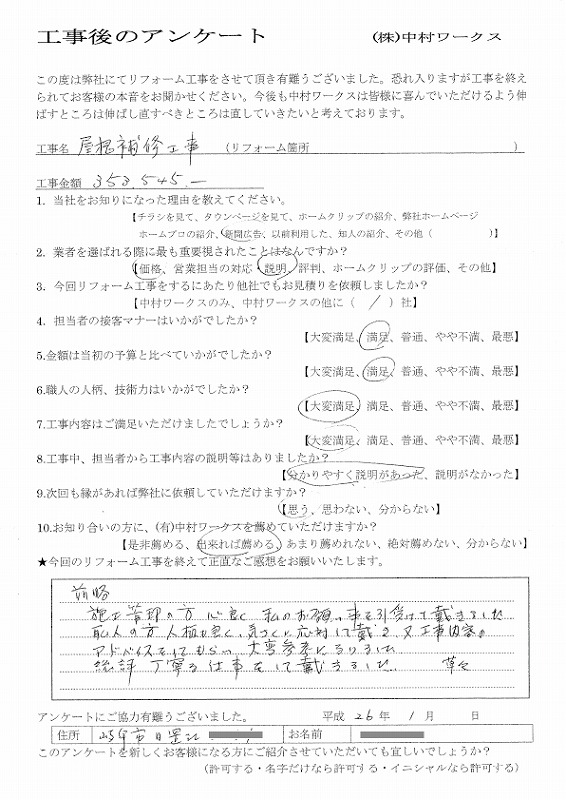 工事後のアンケート　(株)中村ワークス
この度は弊社にてリフォーム工事をさせて頂き有難うございました。恐れ入りますが工事を終え
られてお客様の本音をお聞かせください。今後も中村ワークスは皆様に喜んでいただけるよう伸
ばすところは伸ばし直すべきところは直していきたいと考えております。
工事名 屋根補修工事 （リフォーム箇所　　　）
工事金額 353,545.-
1. 当社をお知りになった理由を教えてください。
【チラシを見て、タウンページを見て、ホームクリップの紹介、弊社ホームページ
ホームプロの紹介、新聞広告、以前利用した、知人の紹介、その他（　　　）】
2. 業者を選ばれる際に最も重要視されたことはなんですか？
【価格、営業担当の対応、説明、評判、ホームクリップの評価、その他】
3. 今回リフォーム工事をするにあたり他社でもお見積りを依頼しましたか？
【中村ワークスのみ、中村ワークスの他に（ / ）社】
4. 担当者の接客マナーはいかがでしたか？
【大変満足、満足、普通、やや不満、最悪】
5.金額は当初の予算と比べていかがでしたか？
【大変満足、満足、普通、やや不満、最悪】
6.職人の人柄、技術力はいかがでしたか？
【大変満足、満足、普通、やや不満、最悪】
7.工事内容はご満足いただけましたでしょうか？
【大変満足、満足、普通、やや不満、最悪】
8.工事中、担当者から工事内容の説明等はありましたか？
【分かりやすく説明があった、説明がなかった】
9.次回も縁があれば弊社に依頼していただけますか？
【思う、思わない、分からない】
10.お知り合いの方に、(有)中村ワークスを薦めていただけますか？
【是非薦める、出来れば薦める、あまり薦めれない、絶対薦めない、分からない】
★今回のリフォーム工事を終えて正直なご感想をお願いいたします。
前略
施工管理の方 心良く 私のお願い事を引受けて戴きました
職人の方 人柄も良く、気さくに応対して戴き 又工事内容の
アドバイスをしてもらい 大変参考になりました
総評 丁寧な仕事をして戴きました。 草々
アンケートにご協力有難うございました。　平成 26 年 1 月 日
住所 お名前
このアンケートを新しくお客様になる方にご紹介させていただいても宜しいでしょうか？
（許可する・名字だけなら許可する・イニシャルなら許可する）